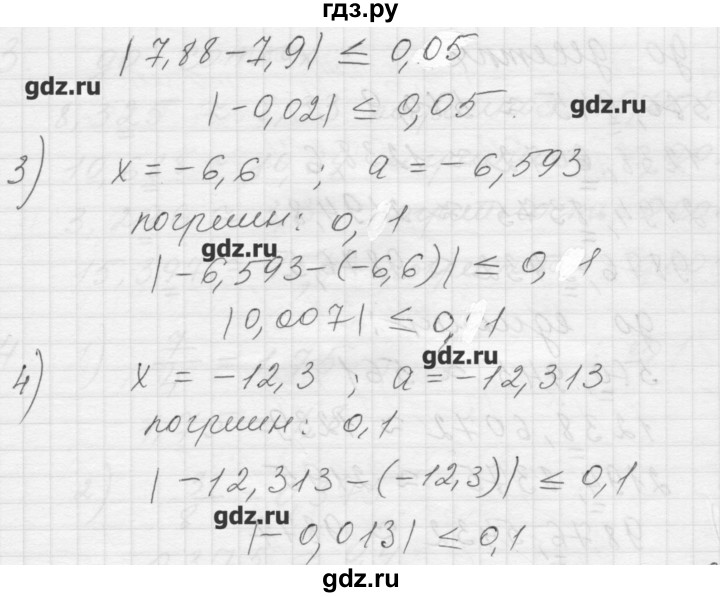 гдз.ру
|7,88-7,9| ≤ 0,05
gdz.ru
|-0,02| ≤ 0,05
gdz.ru
3) x = -6,6 ; a = -6,593
погрешн: 0,1
gdz.ru
|-6,593-(-6,6)| ≤ 0,1
|0,007| ≤ 0,1
gdz.ru
4) x = -12,3 ; a = -12,313
погрешн: 0,1
|-12,313-(-12,3)| ≤ 0,1
gdz.ru
|-0,013| ≤ 0,1
gdz.ru